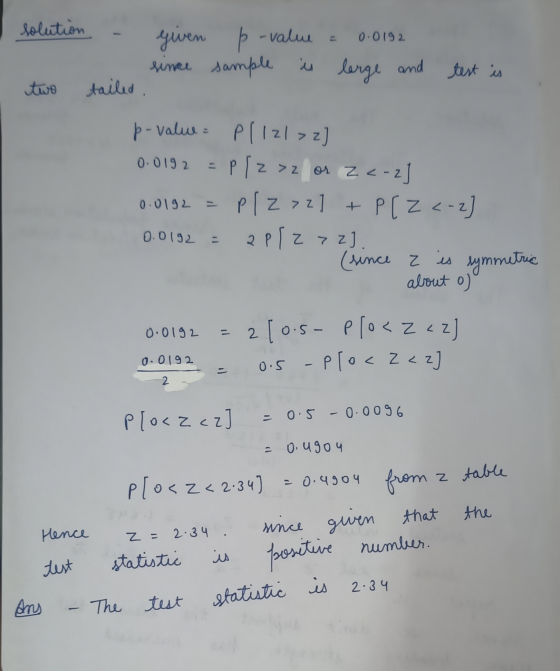 Solution - given p-value = 0.0192
since sample is large and test is
two tailed.
p-value = P[|z| > z]
0.0192 = P[Z > z or Z < -z]
0.0192 = P[Z > z] + P[Z < -z]
0.0192 = 2P[Z > z].
(since Z is symmetric
about 0)
0.0192 = 2[0.5 - P[0 < Z < z]
0.0192/2 = 0.5 - P[0 < Z < z]
P[0 < Z < z] = 0.5 - 0.0096
= 0.4904
P[0 < Z < 2.34] = 0.4904 from z table
Hence Z = 2.34. since given that the
test statistic is positive number.
Ans - The test statistic is 2.34